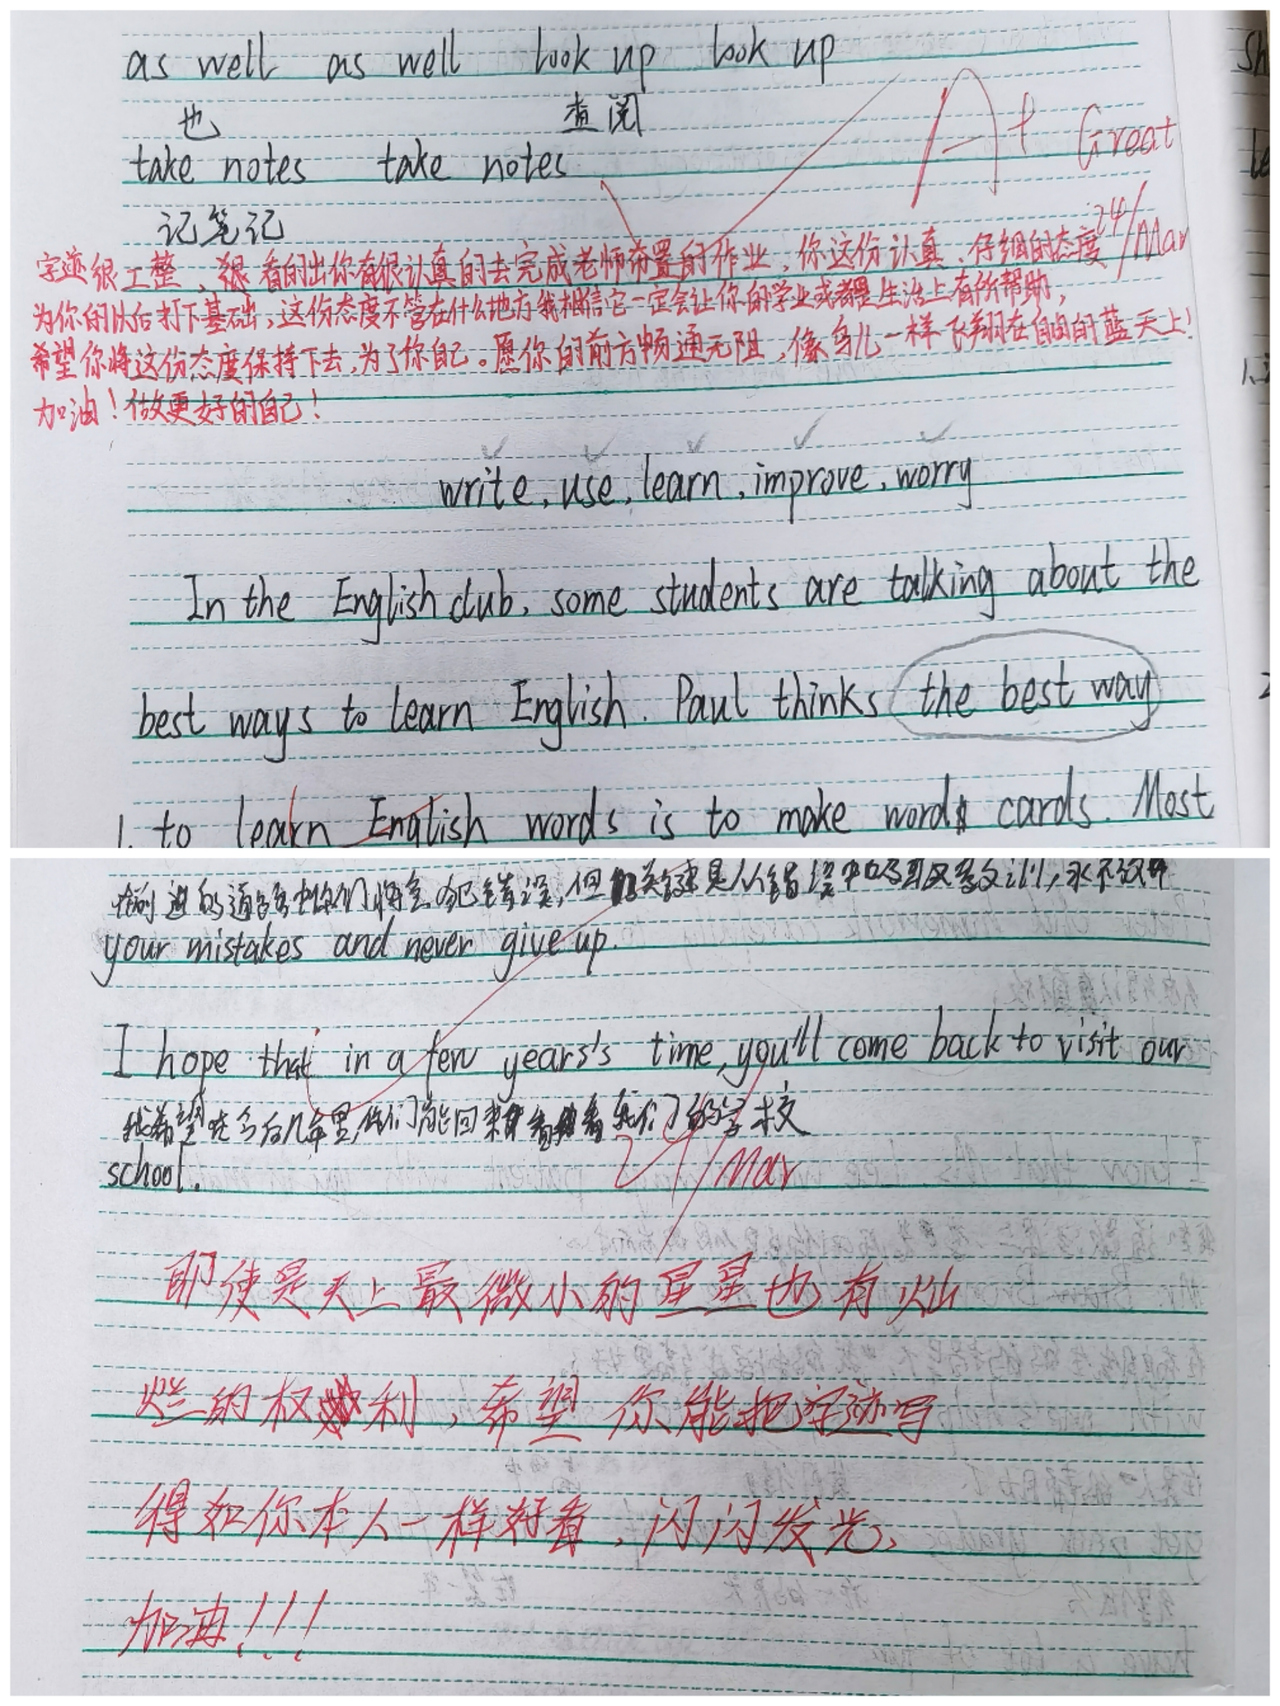 as well as well look up look up
也 查阅
take notes take notes
A+ Great
记笔记
24/Mar
字迹很工整，看的出你有很认真的去完成老师布置的作业，你这份认真、仔细的态度
为你的以后打下基础，这份态度不管在什么地方我相信它一定会让你的学业或者是生活上有所帮助，
希望你将这份态度保持下去，为了你自己。愿你的前方畅通无阻，像鸟儿一样飞翔在自由的蓝天上！
加油！做更好的自己！
write, use, learn, improve, worry
In the English club, some students are talking about the
best ways to learn English. Paul thinks the best way
1. to learn English words is to make words cards. Most
你们将会犯错误，但关键是从错误中吸取教训，永不放弃
your mistakes and never give up.
I hope that in a few years's time, you'll come back to visit our
我希望在今后几年里，你们能回来看看我们的学校
school.
24/Mar
即使是天上最微小的星星也有灿
烂的权利，希望你能把字迹写
得如你本人一样好看，闪闪发光、
加油！！！